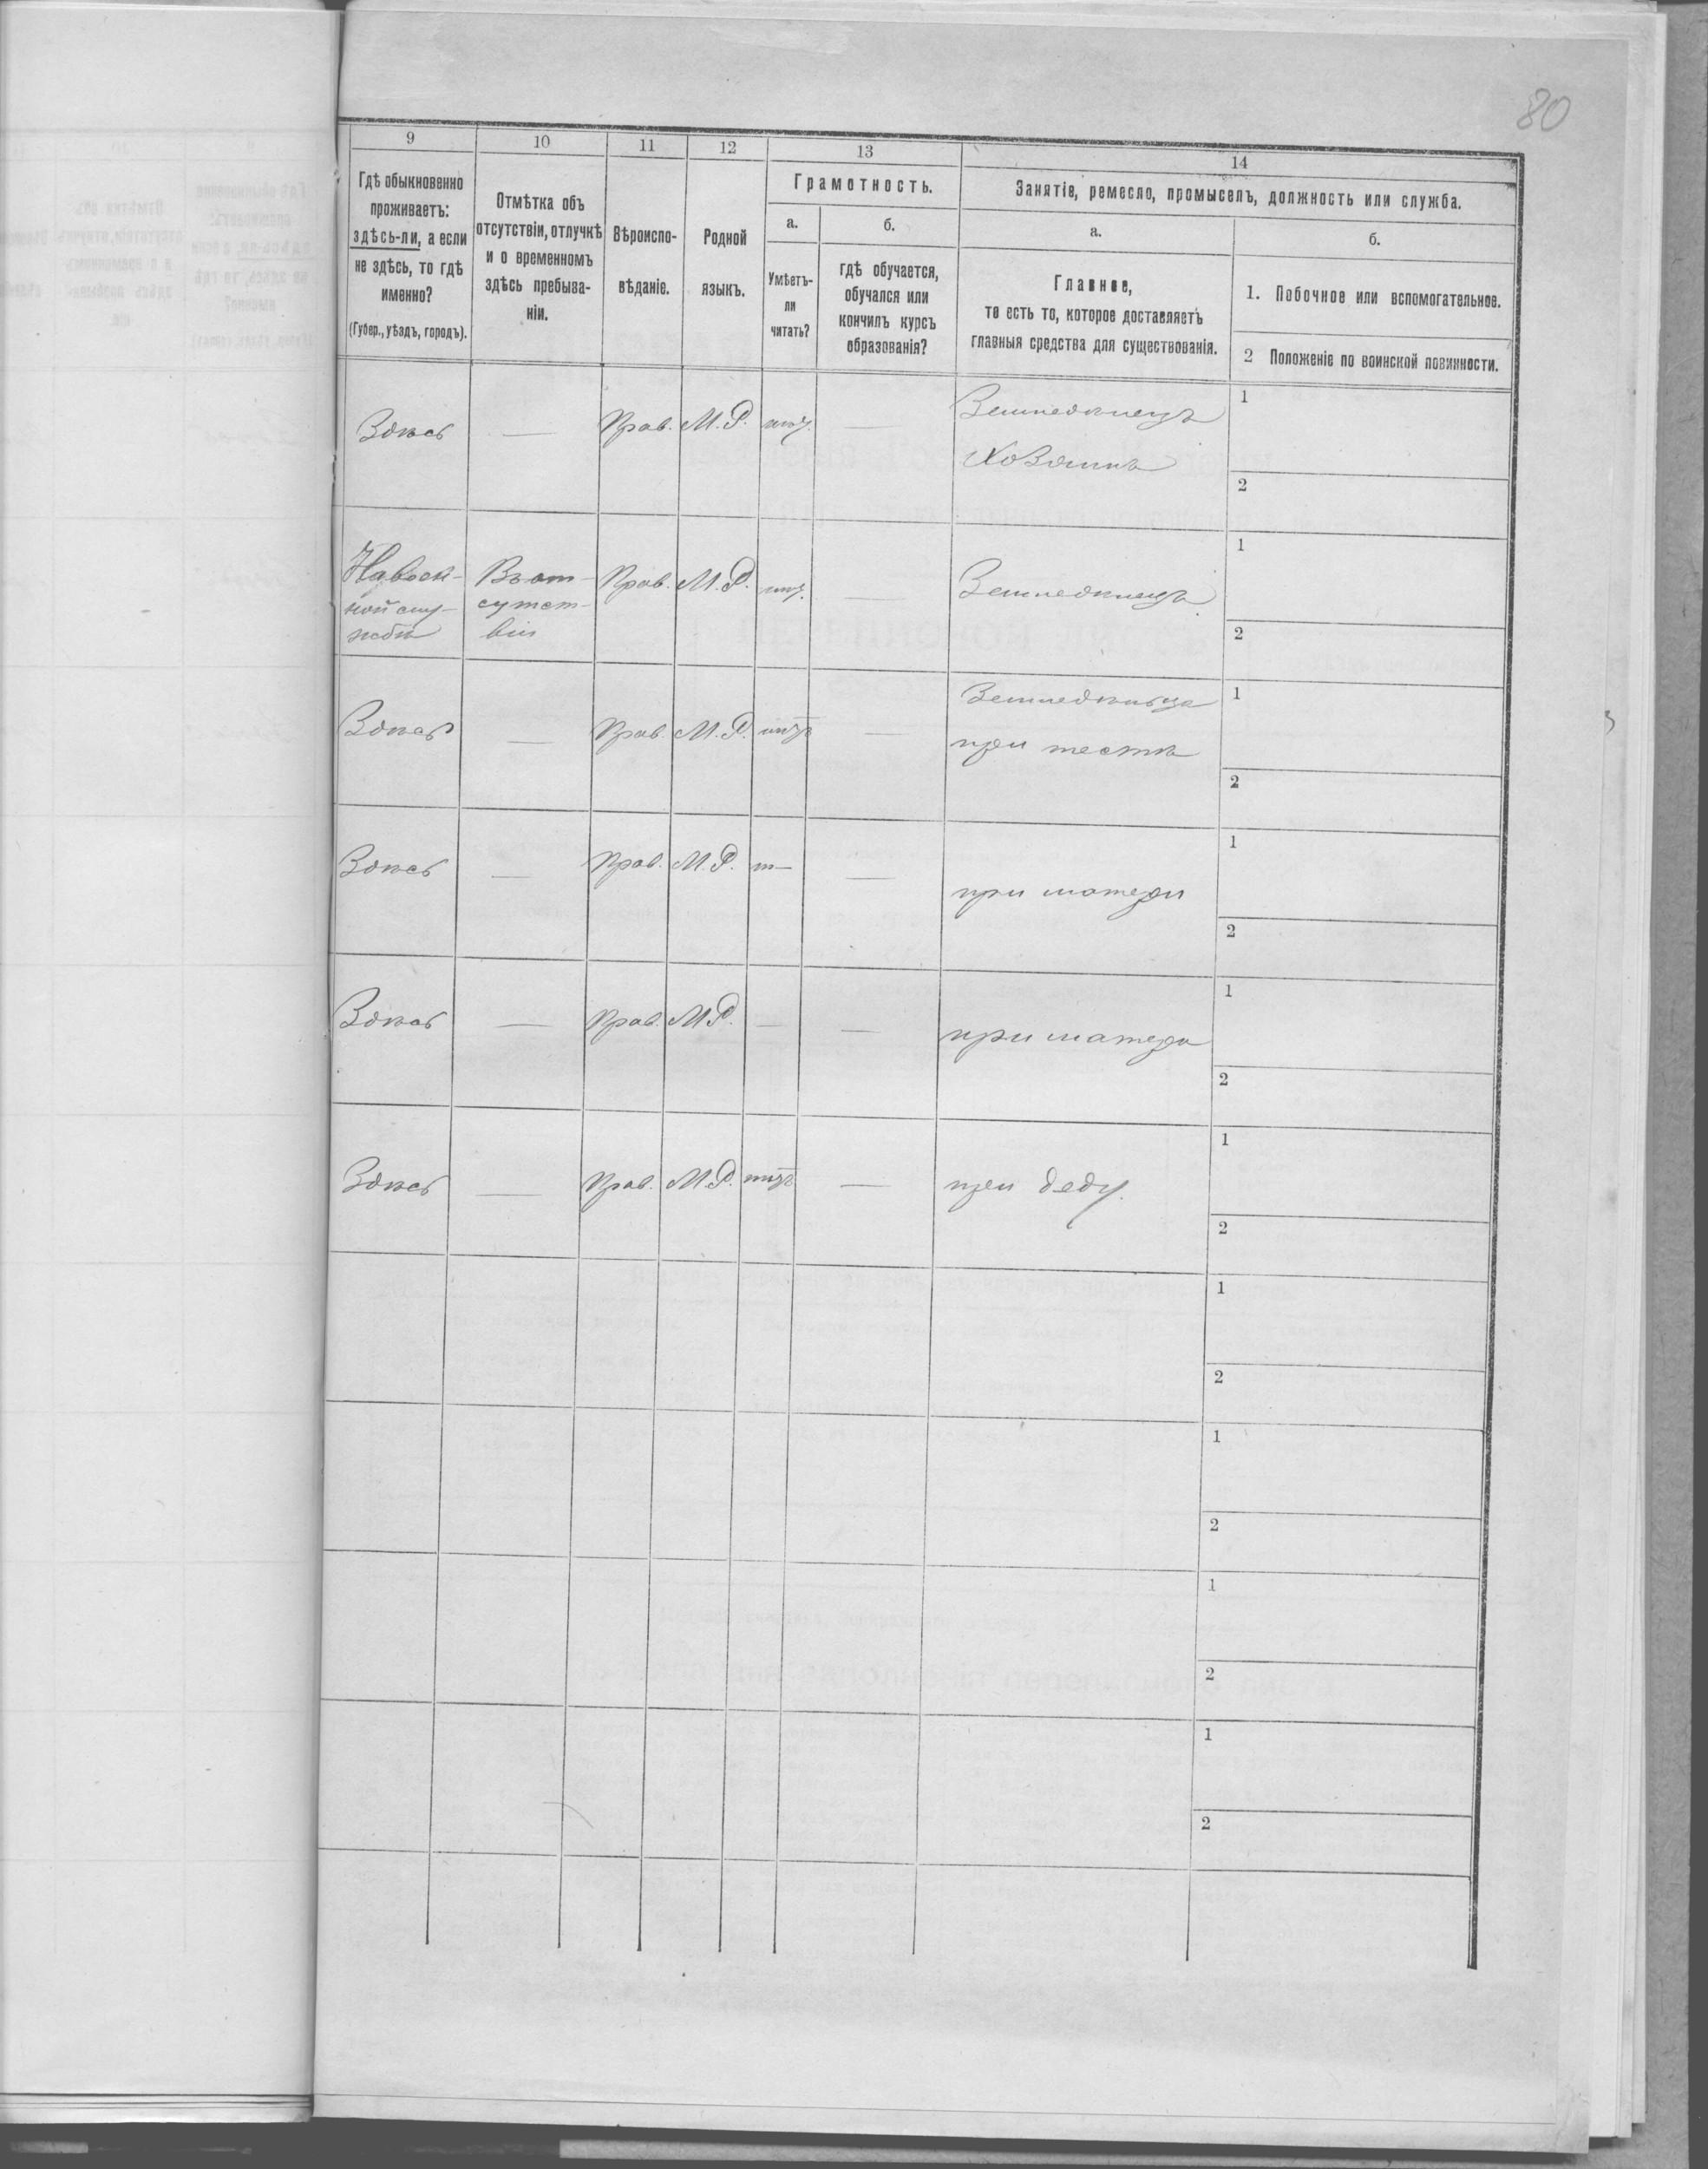 80
9
10
11
12
13
14
Гдѣ обыкновенно
проживаетъ:
здѣсь-ли, а если
не здѣсь, то гдѣ
именно?
(Губер., уѣздъ, городъ).
Отмѣтка объ
отсутствіи, отлучкѣ
и о временномъ
здѣсь пребыва-
ніи.
Вѣроиспо-
вѣданіе.
Родной
языкъ.
Грамотность.
а.
Умѣетъ-
ли
читать?
б.
гдѣ обучается,
обучался или
кончилъ курсъ
образованія?
Занятіе, ремесло, промыселъ, должность или служба.
а.
Главное,
то есть то, которое доставляетъ
главныя средства для существованія.
б.
1. Побочное или вспомогательное.
2 Положеніе по воинской повинности.
Здѣсь — Прав. М.Р. —
Земледѣлецъ
Хозяинъ
1
2
На воен-
ной слу-
жбѣ
Въ от-
сутст-
віи
Прав. М.Р. —
Земледѣлецъ
1
2
Здѣсь — Прав. М.Р. —
Земледѣльца
при тестѣ
1
2
Здѣсь — Прав. М.Р. —
при матери
1
2
Здѣсь — Прав. М.Р. — —
при матери
1
2
Здѣсь — Прав. М.Р. —
при деду.
1
2
1
2
1
2
1
2
1
2